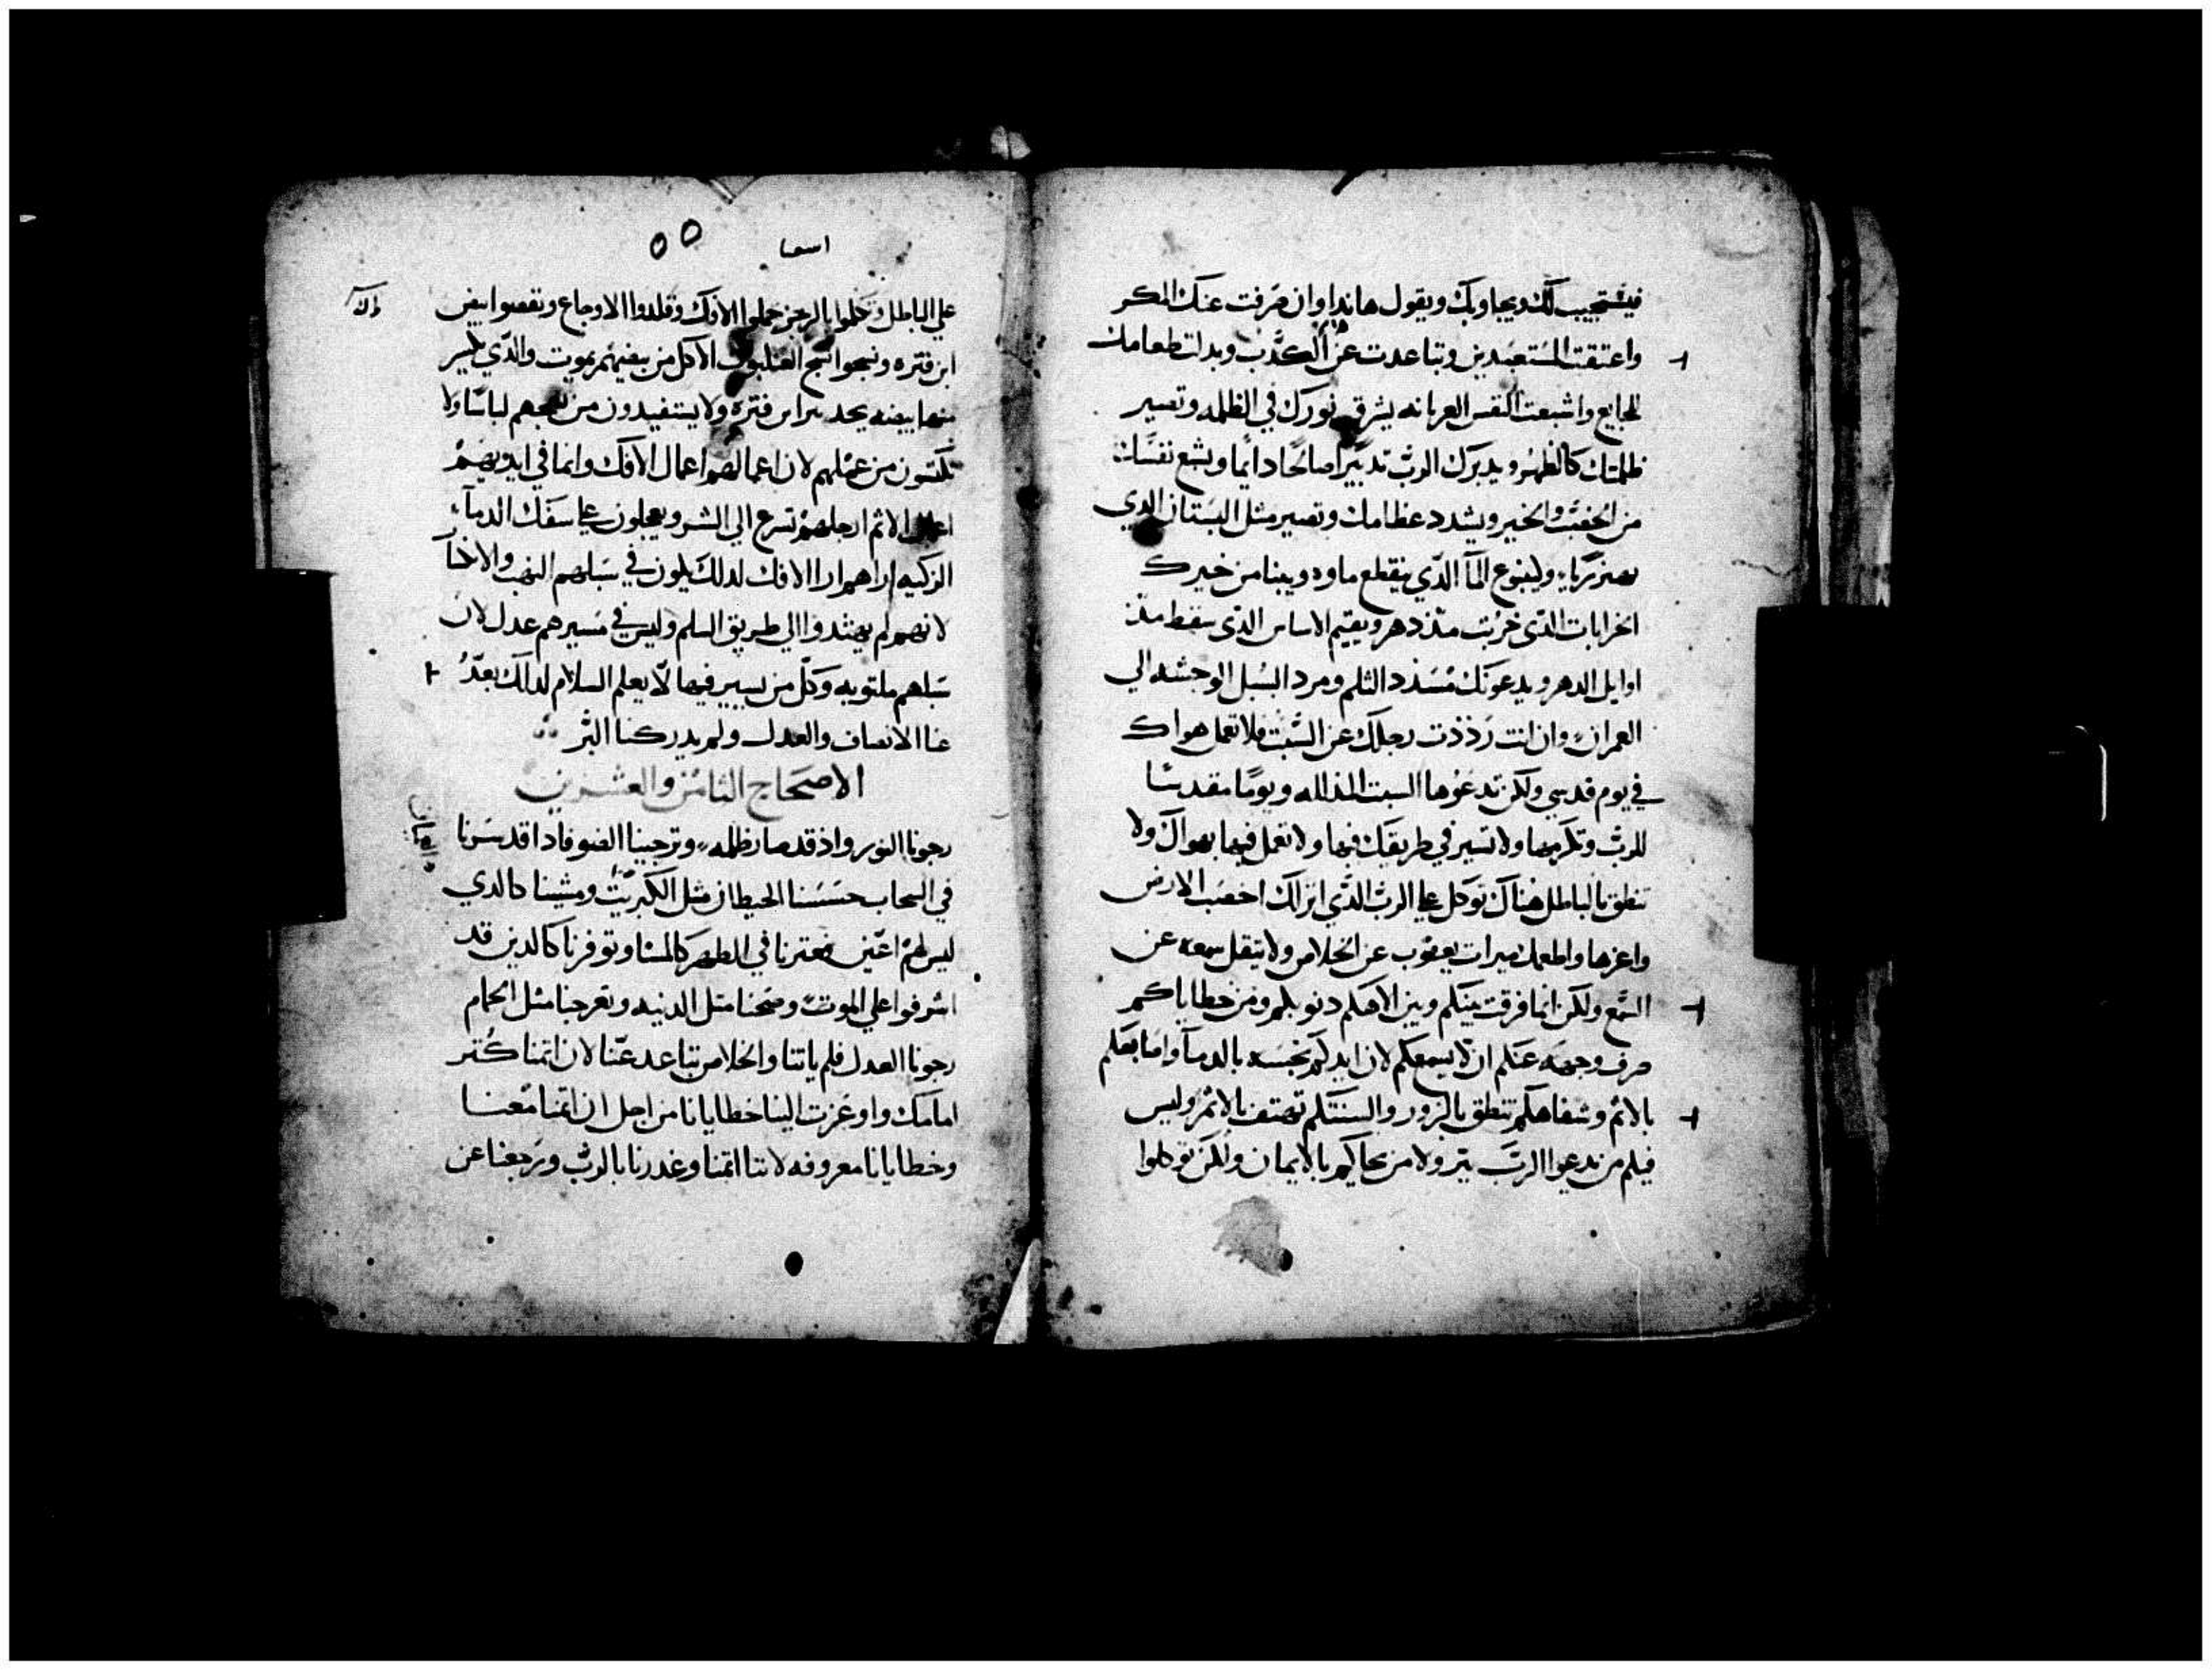 فيستجيب لك ويجاوبك ويقول هانداوان صرفت عنك المكر
واعتقت المستعبدين وتباعدت عن الكذب وبدلت طعامك
للجايع واشبعت النفس العريانه يشرق نورك في الظلمه وتصير
ظلمتك كالظهر ويدبرك الرب تدبيرا صالحا دايما ويشبع نفسك
من الخصب والخير ويشدد عظامك وتصير مثل البستان الدي
وليبنوع المآ الدي ينقطع ماوه ويبنا من خيرك
الخرابات الدي خربت مند دهر ويقيم الاساس الدي سقط مند
اوايل الدهر ويدعونك مسدد الثلم ومرد السبل الوحشه الي
العمران وان انت رددت رجلك عن السبت فلا تعمل هواك
في يوم قدسي ولكن تدعوها السبت المدلله ويوما مقدسا
للرب وتكرمها ولا تسير في طريقك فيها ولا تعمل فيها بهواك ولا
تنطق بالباطل هناك توكل علي الرب الدي انزلك اخصب الارض
واعزها واطعمك ميرات يعقوب عن الخلاص ولا يتقل سمعه عن
السمع ولكن انما فرقت بينكم وبين الاهكم دنوبكم ومن خطاياكم
صرف وجهه عنكم ان لا يسمعكم لان ايديكم نجسه بالدمآ واصابعكم
بالاثم وشفاهكم تنطق بالزور والسنتكم تهتف بالاثم وليس
فيكم من يدعوا الرب ببر ولا من يحاكم بالايمان ولكن توكلوا
اسعيا
٥٥
علي الباطل وتكلموا بالرجز حملوا الافك وولدوا الاوجاع وفقصوا بيض
ابن فتره ونسجوا نسج العنكبوت الاكل من بيضهم يموت والدي يكسر
منها بيضه يجد ابن فتره ولا يستفيدون من نسجهم لباسا ولا
يكتسون من عملهم لان اعمالهم اعمال الافك وانما في ايديهم
اعمال الاثم ارجلهم تسرع الي الشر ويعجلون علي سفك الدمآ
الزكيه اراهم ارا الافك لدلك يكون في سبلهم النهب والانخسآ
لانهم لم يهتدوا الي طريق السلم وليس في مسيرهم عدل لان
سبلهم ملتويه وكل من يسير فيها لا يعلم السلام لدلك بعد
عنا الانصاف والعدل ولم يدركنا البر
الاصحاح الثامن والعشرين
رجونا النور واد قد صار ظلمه وترجينا الضو فادا قد سرنا
في السحاب حسسنا الحيطان مثل ومشينا كالدي
ليس لهم اعين فعترنا في الظهر كالمسا وتوفرنا كالدين قد
اشرفوا علي الموت وضجنا متل الدنيه وتفرجنا متل الحمام
رجونا العدل فلم ياتنا والخلاص تباعد عنا لان اتمنا كتر
امامك واوعزت الينا خطايانا من اجل ان اتمنا معنا
وخطايانا معروفه لاننا اتمنا وغدرنا بالرب ورجعنا عن